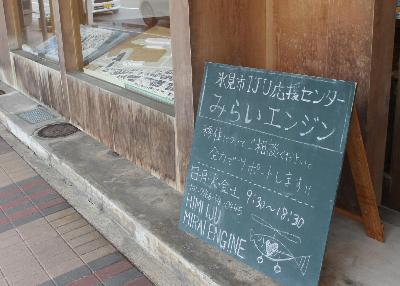 氷見市IJU応援センター
みらいエンジン
移住についてご相談ください
全力でサポートします!!
日月火金土 9:30~18:30
HIMI IJU
MIRAI ENGINE